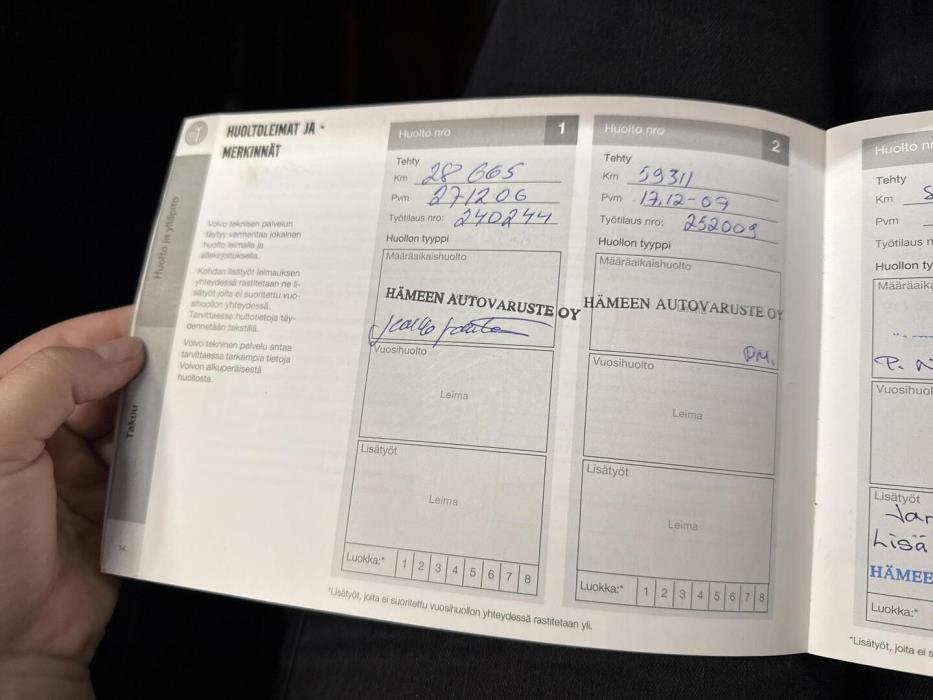 HUOLTOLEIMAT JA -
MERKINNÄT
Huolto ja ylläpito
Takuu
Volvo teknisen palvelun
täytyy varmentaa jokainen
huolto leimalla ja
allekirjoituksella.
Kohdan lisätyöt leimauksen
yhteydessä rastitetaan ne li-
sätyöt joita ei suoritettu vuo-
sihuollon yhteydessä.
Tarvittaessa huoltotietoja täy-
dennetään tekstillä.
Volvo tekninen palvelu antaa
tarvittaessa tarkempia tietoja
Volvon alkuperäisestä
huollosta.
14
Huolto nro 1
Tehty
Km 28 665
Pvm 271206
Työtilaus nro: 240244
Huollon tyyppi
Määräaikaishuolto
HÄMEEN AUTOVARUSTE OY
Vuosihuolto
Leima
Lisätyöt
Leima
Luokka:* 1 2 3 4 5 6 7 8
Huolto nro 2
Tehty
Km 59311
Pvm 17.12-07
Työtilaus nro: 252009
Huollon tyyppi
Määräaikaishuolto
HÄMEEN AUTOVARUSTE OY
PM.
Vuosihuolto
Leima
Lisätyöt
Leima
Luokka:* 1 2 3 4 5 6 7 8
*Lisätyöt, joita ei suoritettu vuosihuollon yhteydessä rastitetaan yli.
Huolto nr
Tehty
Km
Pvm
Työtilaus n
Huollon ty
Määräa
P. N
Vuosihuol
Lisätyöt
Jar
Lisä
HÄMEE
Luokka:*
*Lisätyöt, joita ei s